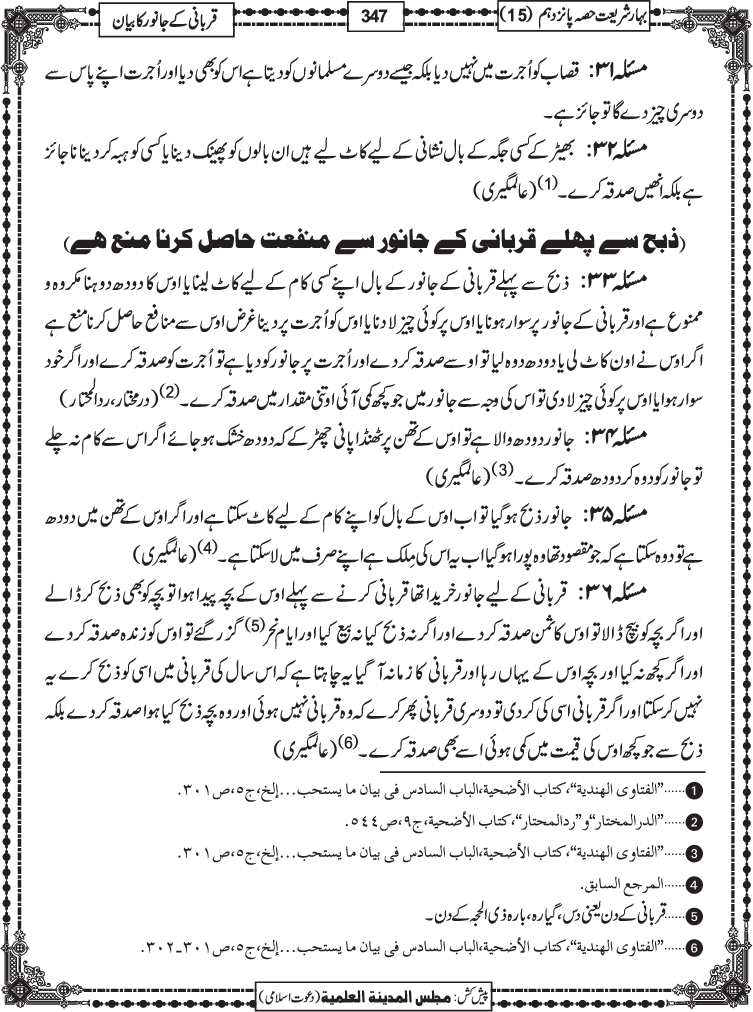 بہار شریعت حصہ پانزدہم (15)
347
قربانی کے جانور کا بیان
مسئلہ ۳۱: قصاب کو اُجرت میں نہیں دیا بلکہ جیسے دوسرے مسلمانوں کو دیتا ہے اس کو بھی دیا اور اُجرت اپنے پاس سے
دوسری چیز دے گا تو جائز ہے۔
مسئلہ ۳۲: بھیڑ کے کسی جگہ کے بال نشانی کے لیے کاٹ لیے ہیں ان بالوں کو پھینک دینا یا کسی کو ہبہ کر دینا ناجائز
ہے بلکہ انھیں صدقہ کرے۔(1) (عالمگیری)
(ذبح سے پھلے قربانی کے جانور سے منفعت حاصل کرنا منع ھے)
مسئلہ ۳۳: ذبح سے پہلے قربانی کے جانور کے بال اپنے کسی کام کے لیے کاٹ لینا یا اوس کا دودھ دوہنا مکروہ و
ممنوع ہے اور قربانی کے جانور پر سوار ہونا یا اوس پر کوئی چیز لادنا یا اوس کو اُجرت پر دینا غرض اوس سے منافع حاصل کرنا منع ہے
اگر اوس نے اون کاٹ لی یا دودھ دوہ لیا تو اوسے صدقہ کر دے اور اُجرت پر جانور کو دیا ہے تو اُجرت کو صدقہ کرے اور اگر خود
سوار ہوا یا اوس پر کوئی چیز لادی تو اس کی وجہ سے جانور میں جو کچھ کمی آئی اوتنی مقدار میں صدقہ کرے۔(2) (درمختار، ردالمحتار)
مسئلہ ۳۴: جانور دودھ والا ہے تو اوس کے تھن پر ٹھنڈا پانی چھڑکے کہ دودھ خشک ہو جائے اگر اس سے کام نہ چلے
تو جانور کو دوہ کر دودھ صدقہ کرے۔(3) (عالمگیری)
مسئلہ ۳۵: جانور ذبح ہوگیا تو اب اوس کے بال کو اپنے کام کے لیے کاٹ سکتا ہے اور اگر اوس کے تھن میں دودھ
ہے تو دوہ سکتا ہے کہ جو مقصود تھا وہ پورا ہوگیا اب یہ اس کی مِلک ہے اپنے صرف میں لا سکتا ہے۔(4) (عالمگیری)
مسئلہ ۳۶: قربانی کے لیے جانور خریدا تھا قربانی کرنے سے پہلے اوس کے بچہ پیدا ہوا تو بچہ کو بھی ذبح کر ڈالے
اور اگر بچہ کو بیچ ڈالا تو اوس کا ثمن صدقہ کر دے اور اگر نہ ذبح کیا نہ بیع کیا اور ایام نحر(5) گزر گئے تو اوس کو زندہ صدقہ کر دے
اور اگر کچھ نہ کیا اور بچہ اوس کے یہاں رہا اور قربانی کا زمانہ آ گیا یہ چاہتا ہے کہ اس سال کی قربانی میں اسی کو ذبح کرے یہ
نہیں کر سکتا اور اگر قربانی اسی کی کر دی تو دوسری قربانی پھر کرے کہ وہ قربانی نہیں ہوئی اور وہ بچہ ذبح کیا ہوا صدقہ کر دے بلکہ
ذبح سے جو کچھ اوس کی قیمت میں کمی ہوئی اسے بھی صدقہ کرے۔(6) (عالمگیری)
1 ......"الفتاوی الھندیة"، کتاب الأضحیة، الباب السادس فی بیان ما یستحب...إلخ، ج٥، ص٣٠١.
2 ......"الدرالمختار" و"ردالمحتار"، کتاب الأضحیة، ج٩، ص٥٤٤.
3 ......"الفتاوی الھندیة"، کتاب الأضحیة، الباب السادس فی بیان ما یستحب...إلخ، ج٥، ص٣٠١.
4 ......المرجع السابق.
5 ......قربانی کے دن یعنی دس، گیارہ، بارہ ذی الحجہ کے دن۔
6 ......"الفتاوی الھندیة"، کتاب الأضحیة، الباب السادس فی بیان ما یستحب...إلخ، ج٥، ص٣٠١-٣٠٢.
پیش کش: مجلس المدینة العلمیة (دعوتِ اسلامی)